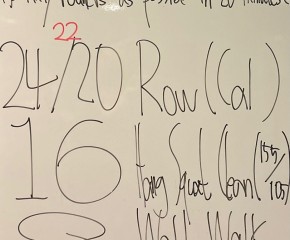 as many rounds as possible in 20 minutes
22
24/20 Row (Cal)
16 Hang Squat Clean (155/105)
Wall Walk